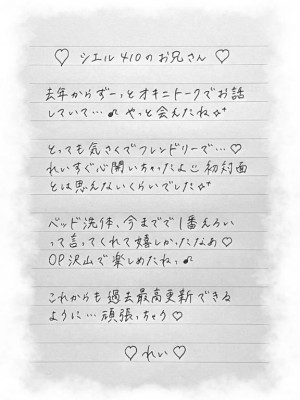 ♡ シエル 410のお兄さん ♡
去年からずーっとオキニトークでお話
していて…♪ やっと会えたね☆⁺
とっても気さくでフレンドリーで…♡
れいすぐ心開いちゃったよ☺初対面
とは思えないくらいでした☆⁺
ベッド洗体、今までで1番えろい
って言ってくれて嬉しかったなあ♡
OP沢山で楽しめたねっ♪
これからも過去最高更新できる
ように…頑張っちゃう♡
♡ れい ♡